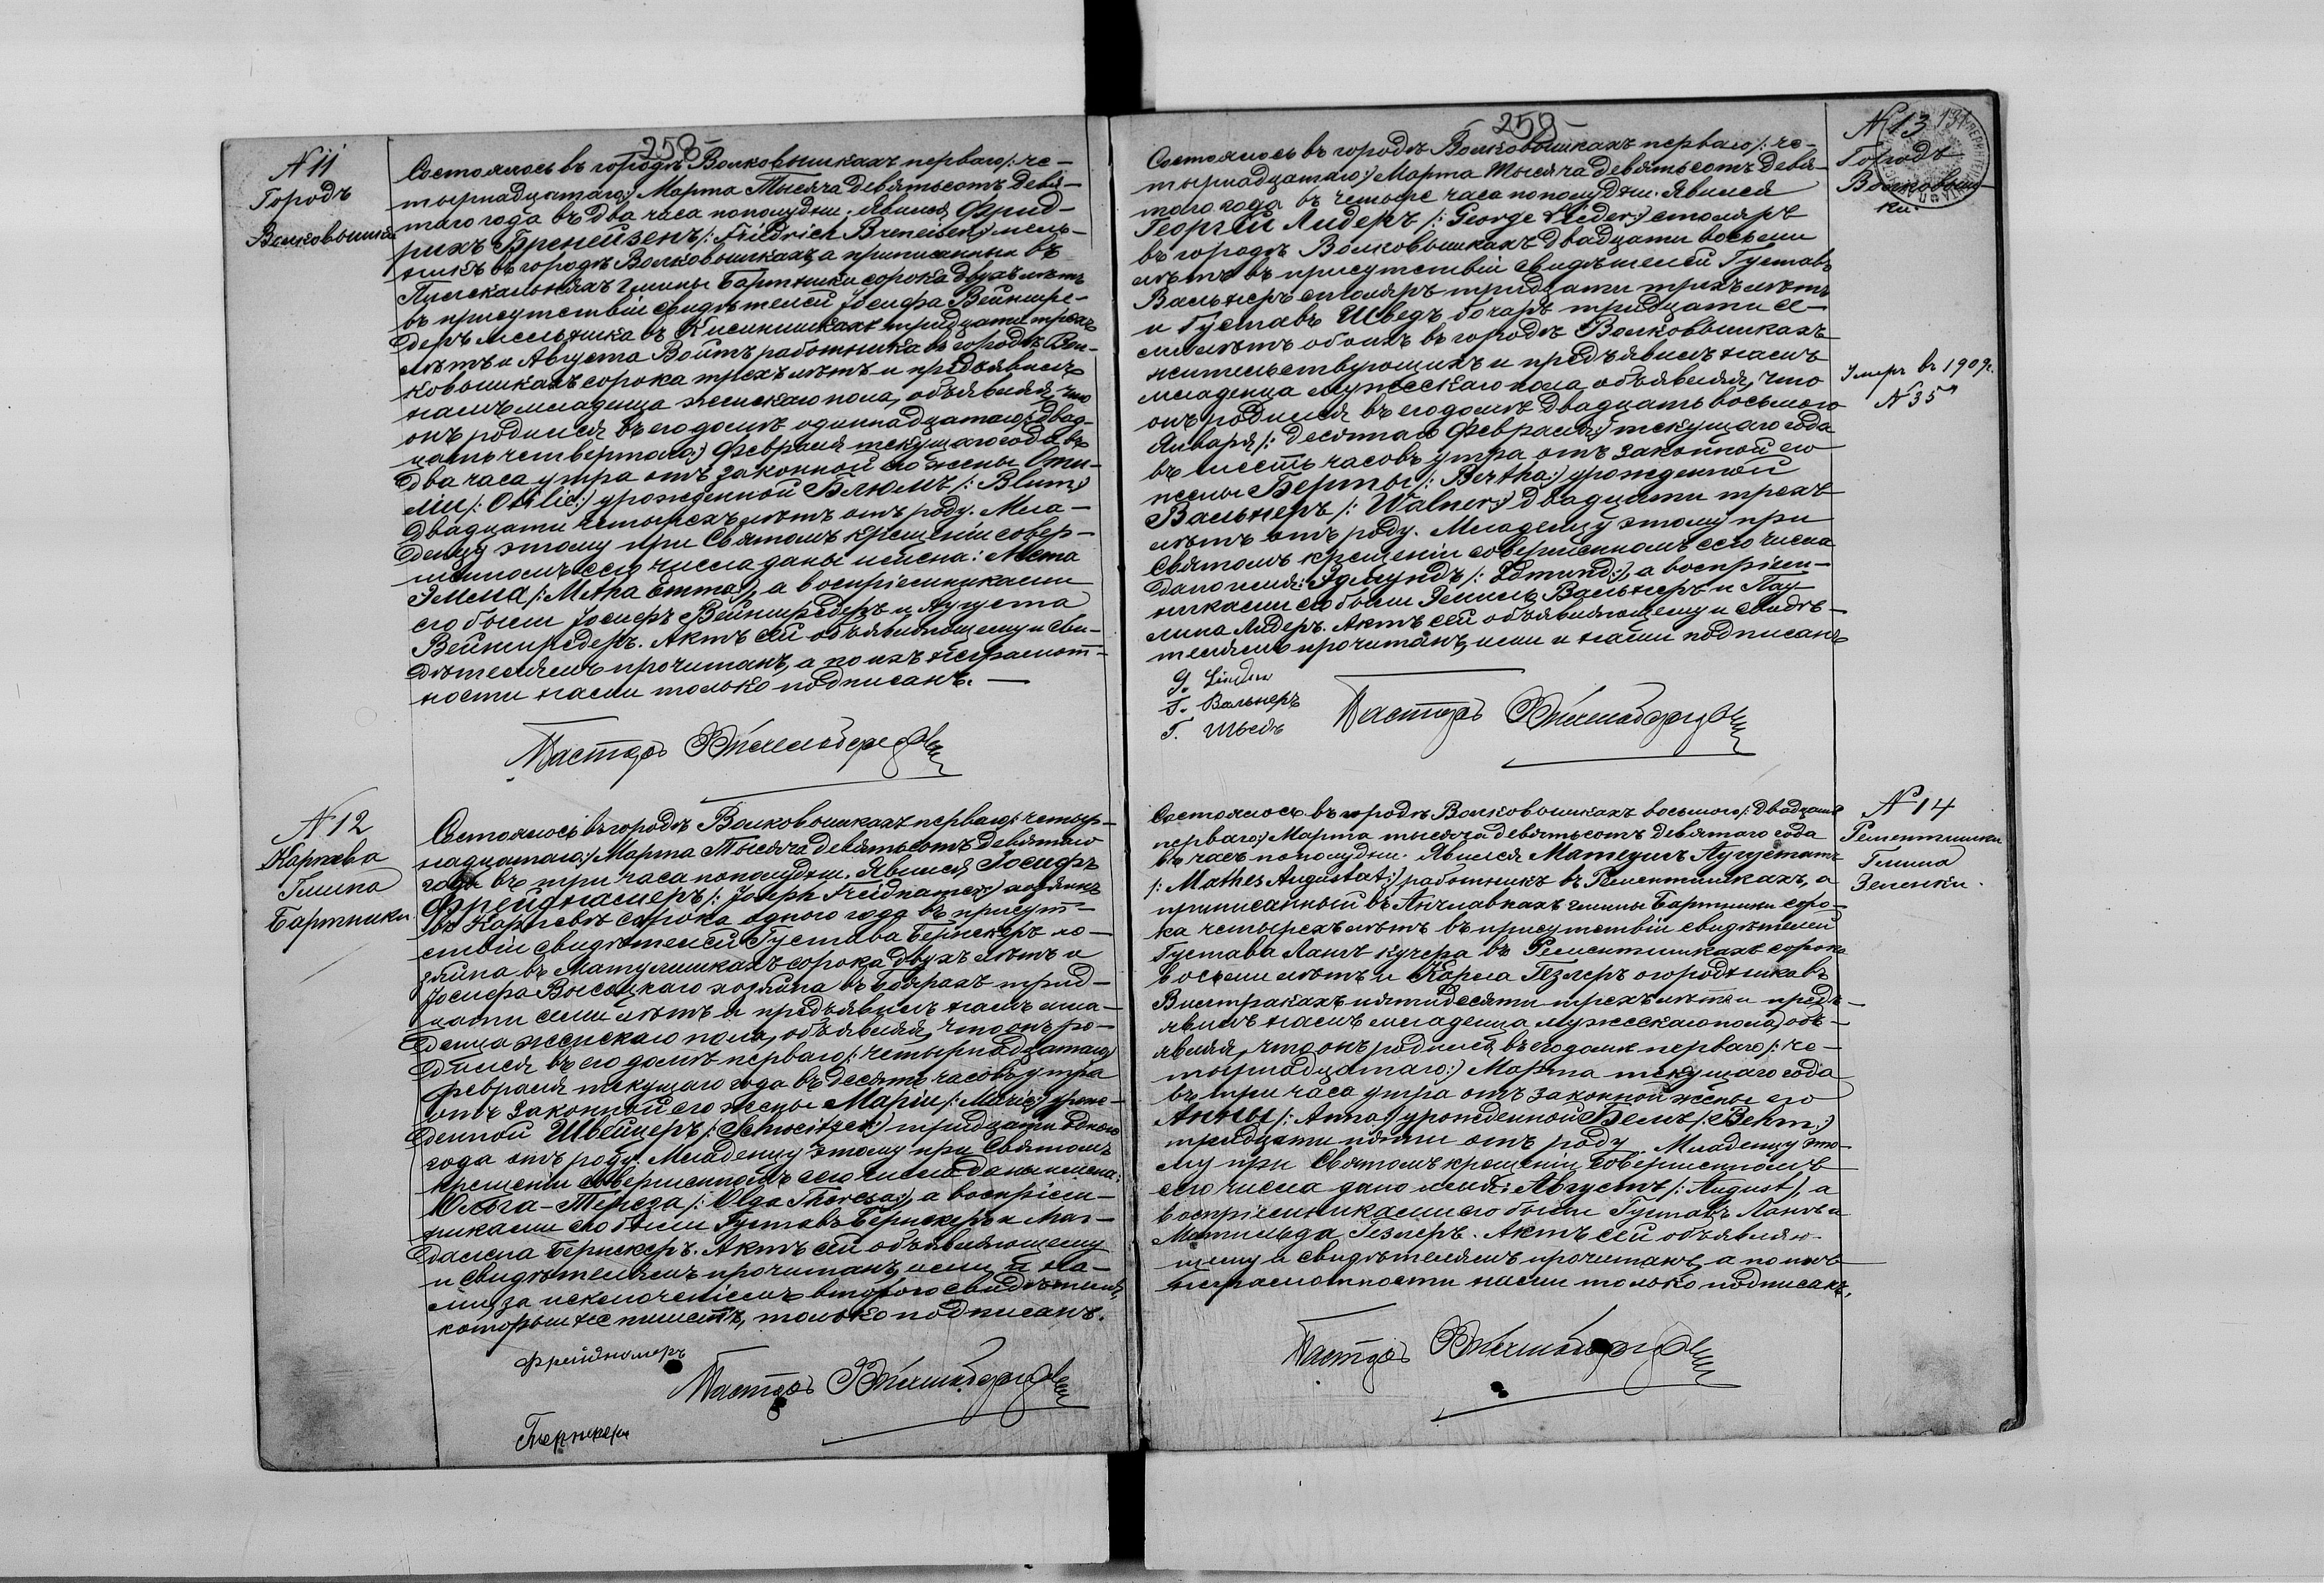 258
N 11
Городъ
Волковышки
Состоялось въ городѣ Волковышкахъ перваго /: че-
тырнадцатаго :/ Марта Тысяча девятьсотъ девя-
таго года въ два часа пополудни. Явился Фрид-
рихъ Бренейзенъ /: Friedrich Breneisen :/ мель-
никъ въ городѣ Волковышкахъ, а приписанный въ
гмины Бартники сорока двухъ лѣтъ
въ присутствіи свидѣтелей Іосифа Вейншре-
деръ мельника въ тридцати трехъ
лѣтъ и Августа Войтъ работника въ городѣ Вол-
ковышкахъ сорока трехъ лѣтъ и предъявилъ
намъ младенца женскаго пола, объявляя, что
онъ родился въ его домѣ одиннадцатаго /: двад-
цать четвертаго :/ Февраля текущаго года въ
два часа утра отъ законной его жены Оти-
ліи /: Otilie :/ урожденной Блюмъ /: Blum :/
двадцати четырехъ лѣтъ отъ роду. Мла-
денцу этому при Святомъ крещеніи совер-
шенномъ сего числа даны имена: Мета
Эмма /: Metha Emma :/, а воспріемниками
его были Іосифъ Вейншредеръ и Августа
Вейншредеръ. Актъ сей объявляющему и сви-
дѣтелямъ прочитанъ, а по ихъ неграмот-
ности нами только подписанъ.
Пасторъ
N 12
Каркева
Гмина
Бартники
Состоялось въ городѣ Волковышкахъ перваго /: четыр-
надцатаго :/ Марта Тысяча девятьсотъ девятаго
года въ три часа пополудни. Явился Іосифъ
Фрейдгамеръ /: Joseph :/ хозяинъ
въ Каркевѣ сорока одного года въ присут-
ствіи свидѣтелей Густава Бернекеръ хо-
зяина въ Матулишкахъ сорока двухъ лѣтъ и
Іосифа Высоцкаго хозяина въ Бобрахъ трид-
цати семи лѣтъ и предъявилъ намъ мла-
денца женскаго пола, объявляя, что онъ ро-
дился въ его домѣ перваго /: четырнадцатаго :/
февраля текущаго года въ десять часовъ утра
отъ законной его жены Маріи /: Marie :/ урож-
денной Швейцеръ /: Schweitzer :/ тридцати одного
года отъ роду. Младенцу этому при Святомъ
крещеніи совершенномъ сего числа даны имена:
Ольга-Тереза /: Olga Theresa :/, а воспріем-
никами его были Густавъ Бернекеръ и Маг-
далена Бернекеръ. Актъ сей объявляющему
и свидѣтелямъ прочитанъ, ими и на-
ми, за исключеніемъ втораго свидѣтеля,
который не пишетъ, только подписанъ.
Пасторъ
Бернекеръ
259
N 13
Городъ
Волковыш-
ки.
Умеръ въ 1909 г.
N 35
Состоялось въ городѣ Волковышкахъ перваго /: че-
тырнадцатаго :/ Марта тысяча девятьсотъ девя-
таго года въ четыре часа пополудни. Явился
Георгій Лидеръ /: George Lieder :/ столяръ
въ городѣ Волковышкахъ двадцати восьми
лѣтъ въ присутствіи свидѣтелей Густавъ
Вальнеръ столяръ тридцати трехъ лѣтъ
и Густавъ Шведъ бочаръ тридцати се-
ми лѣтъ обоихъ въ городѣ Волковышкахъ
жительствующихъ и предъявилъ намъ
младенца мужескаго пола, объявляя, что
онъ родился въ его домѣ двадцать восьмого
Января /: десятаго Февраля :/ текущаго года
въ шесть часовъ утра отъ законной его
жены Берты /: Bertha :/ урожденной
Вальнеръ /: Walner :/ двадцати трехъ
лѣтъ отъ роду. Младенцу этому при
Святомъ крещеніи совершенномъ сего числа
дано имя: Эдмундъ /: Edmund :/, а воспріем-
никами его были Эмиль Вальнеръ и Пау-
лина Лидеръ. Актъ сей объявляющему и свидѣ-
телямъ прочитанъ, ими и нами подписанъ
Г. Вальнеръ
Г. Шведъ
Пасторъ
N 14
Рементишки
Гмина
Зеленки.
Состоялось въ городѣ Волковышкахъ восьмого /: двадцать
перваго :/ Марта тысяча девятьсотъ девятаго года
въ часъ пополудни. Явился Матеушъ Аугустатъ
/: Mathes Augustat :/ работникъ въ Рементишкахъ, а
приписанный въ Анчлавкахъ гмины Бартники соро-
ка четырехъ лѣтъ въ присутствіи свидѣтелей
Густава Лангъ кучера въ Рементишкахъ сорока
восьми лѣтъ и Карла Гезлеръ огородника въ
Вистракахъ пятидесяти трехъ лѣтъ и предъ-
явилъ намъ младенца мужескаго пола, объ-
являя, что онъ родился въ его домѣ перваго /: че-
тырнадцатаго :/ Марта текущаго года
въ три часа утра отъ законной жены его
Анны /: Anna :/ урожденной Бемъ /: Behm :/
тридцати пяти отъ роду. Младенцу это-
му при Святомъ крещеніи совершенномъ
сего числа дано имя: Августъ /: August :/, а
воспріемниками его были Густавъ Лангъ и
Матильда Гезлеръ. Актъ сей объявляю-
щему и свидѣтелямъ прочитанъ, а по ихъ
неграмотности нами только подписанъ.
Пасторъ